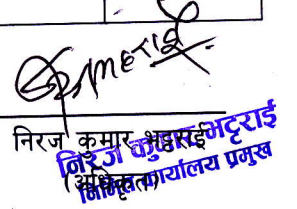 निरज कुमार भट्टराई
(अधिकृत)
निरज कुमार भट्टराई
निमित्त कार्यालय प्रमुख